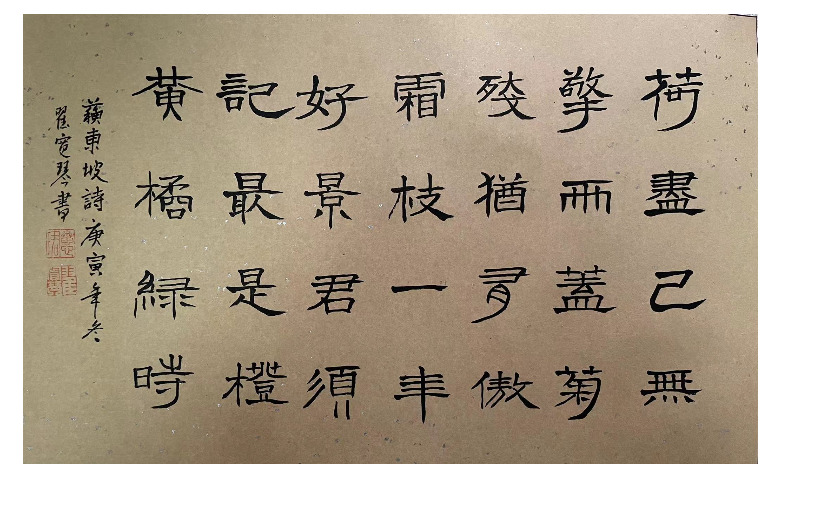 荷盡已無
擎雨蓋菊
殘猶有傲
霜枝一年
好景君須
記最是橙
黃橘緑時
蘇東坡詩庚寅年冬
翟寬琴書